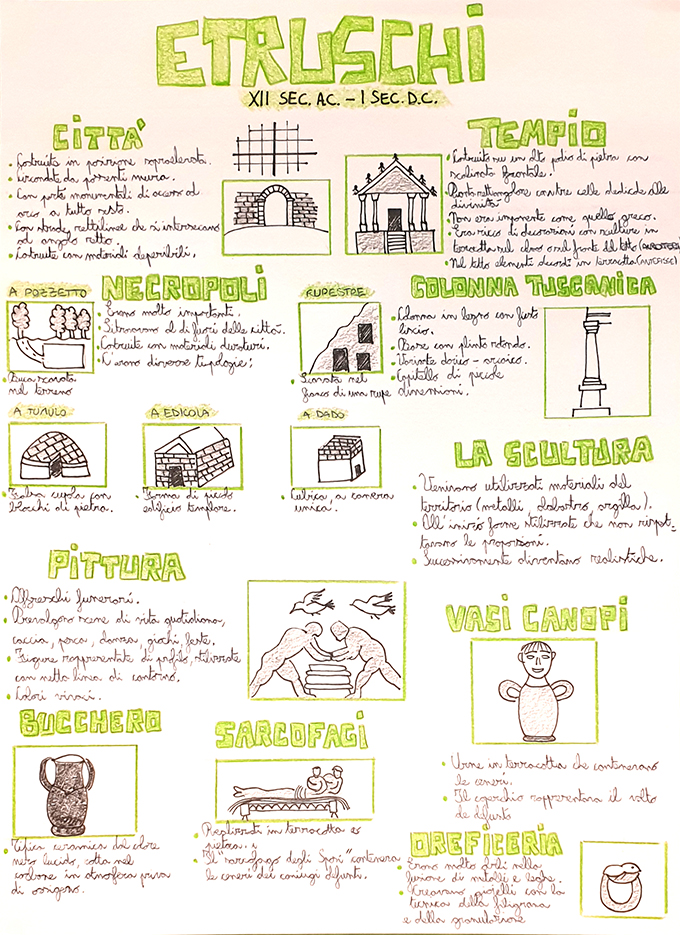 ETRUSCHI
XII SEC. AC. - I SEC. D.C.
CITTA'
• Costruita in posizione sopraelevata.
• Circondate da possenti mura.
• Con porte monumentali di accesso ad
arco a tutto sesto.
• Con strade rettilinee che si intersecano
ad angolo retto.
• Costruite con materiali deperibili.
TEMPIO
• Costruito su un alto podio di pietra con
scalinata frontale.
• Pianta rettangolare con tre celle dedicate alle
divinità
• Non era imponente come quello greco.
• Era ricco di decorazioni con sculture in
terracotta nel colmo o nel fronte del tetto (ACROTERI)
• Nel tetto elementi decorati in terracotta (ANTEFISSE)
NECROPOLI
• Erano molto importanti.
• Si trovavano al di fuori delle città.
• Costruite con materiali duraturi.
• C'erano diverse tipologie:
A POZZETTO
• Buca scavata
nel terreno
RUPESTRE
• Scavata nel
fianco di una rupe
A TUMULO
• Falsa cupola con
blocchi di pietra.
A EDICOLA
• Forma di piccolo
edificio templare.
A DADO
• Cubica, a camera
unica.
COLONNA TUSCANICA
• Colonna in legno con fusto
liscio.
• Base con plinto rotondo.
• Variante dorico - arcaico.
• Capitello di piccole
dimensioni.
LA SCULTURA
• Venivano utilizzati materiali del
territorio (metalli, alabastro, argilla).
• All'inizio forme stilizzate che non rispet-
tavano le proporzioni.
• Successivamente diventano realistiche.
PITTURA
• Affreschi funerari.
• Prevalgono scene di vita quotidiana,
caccia, pesca, danza, giochi, feste.
• Figure rappresentate di profilo, stilizzate
con netta linea di contorno.
• Colori vivaci.
VASI CANOPI
• Urne in terracotta che contenevano
le ceneri.
• Il coperchio rappresentava il volto
de defunto
BUCCHERO
• Tipica ceramica dal colore
nero lucido, cotta nel
carbone in atmosfera priva
di ossigeno.
SARCOFAGI
• Realizzati in terracotta e
pietra.
• Il "sarcofago degli Sposi" conteneva
le ceneri dei coniugi defunti.
OREFICERIA
• Erano molto abili nella
fusione di metalli e leghe.
• Creavano gioielli con la
tecnica della filigrana
e della granulazione